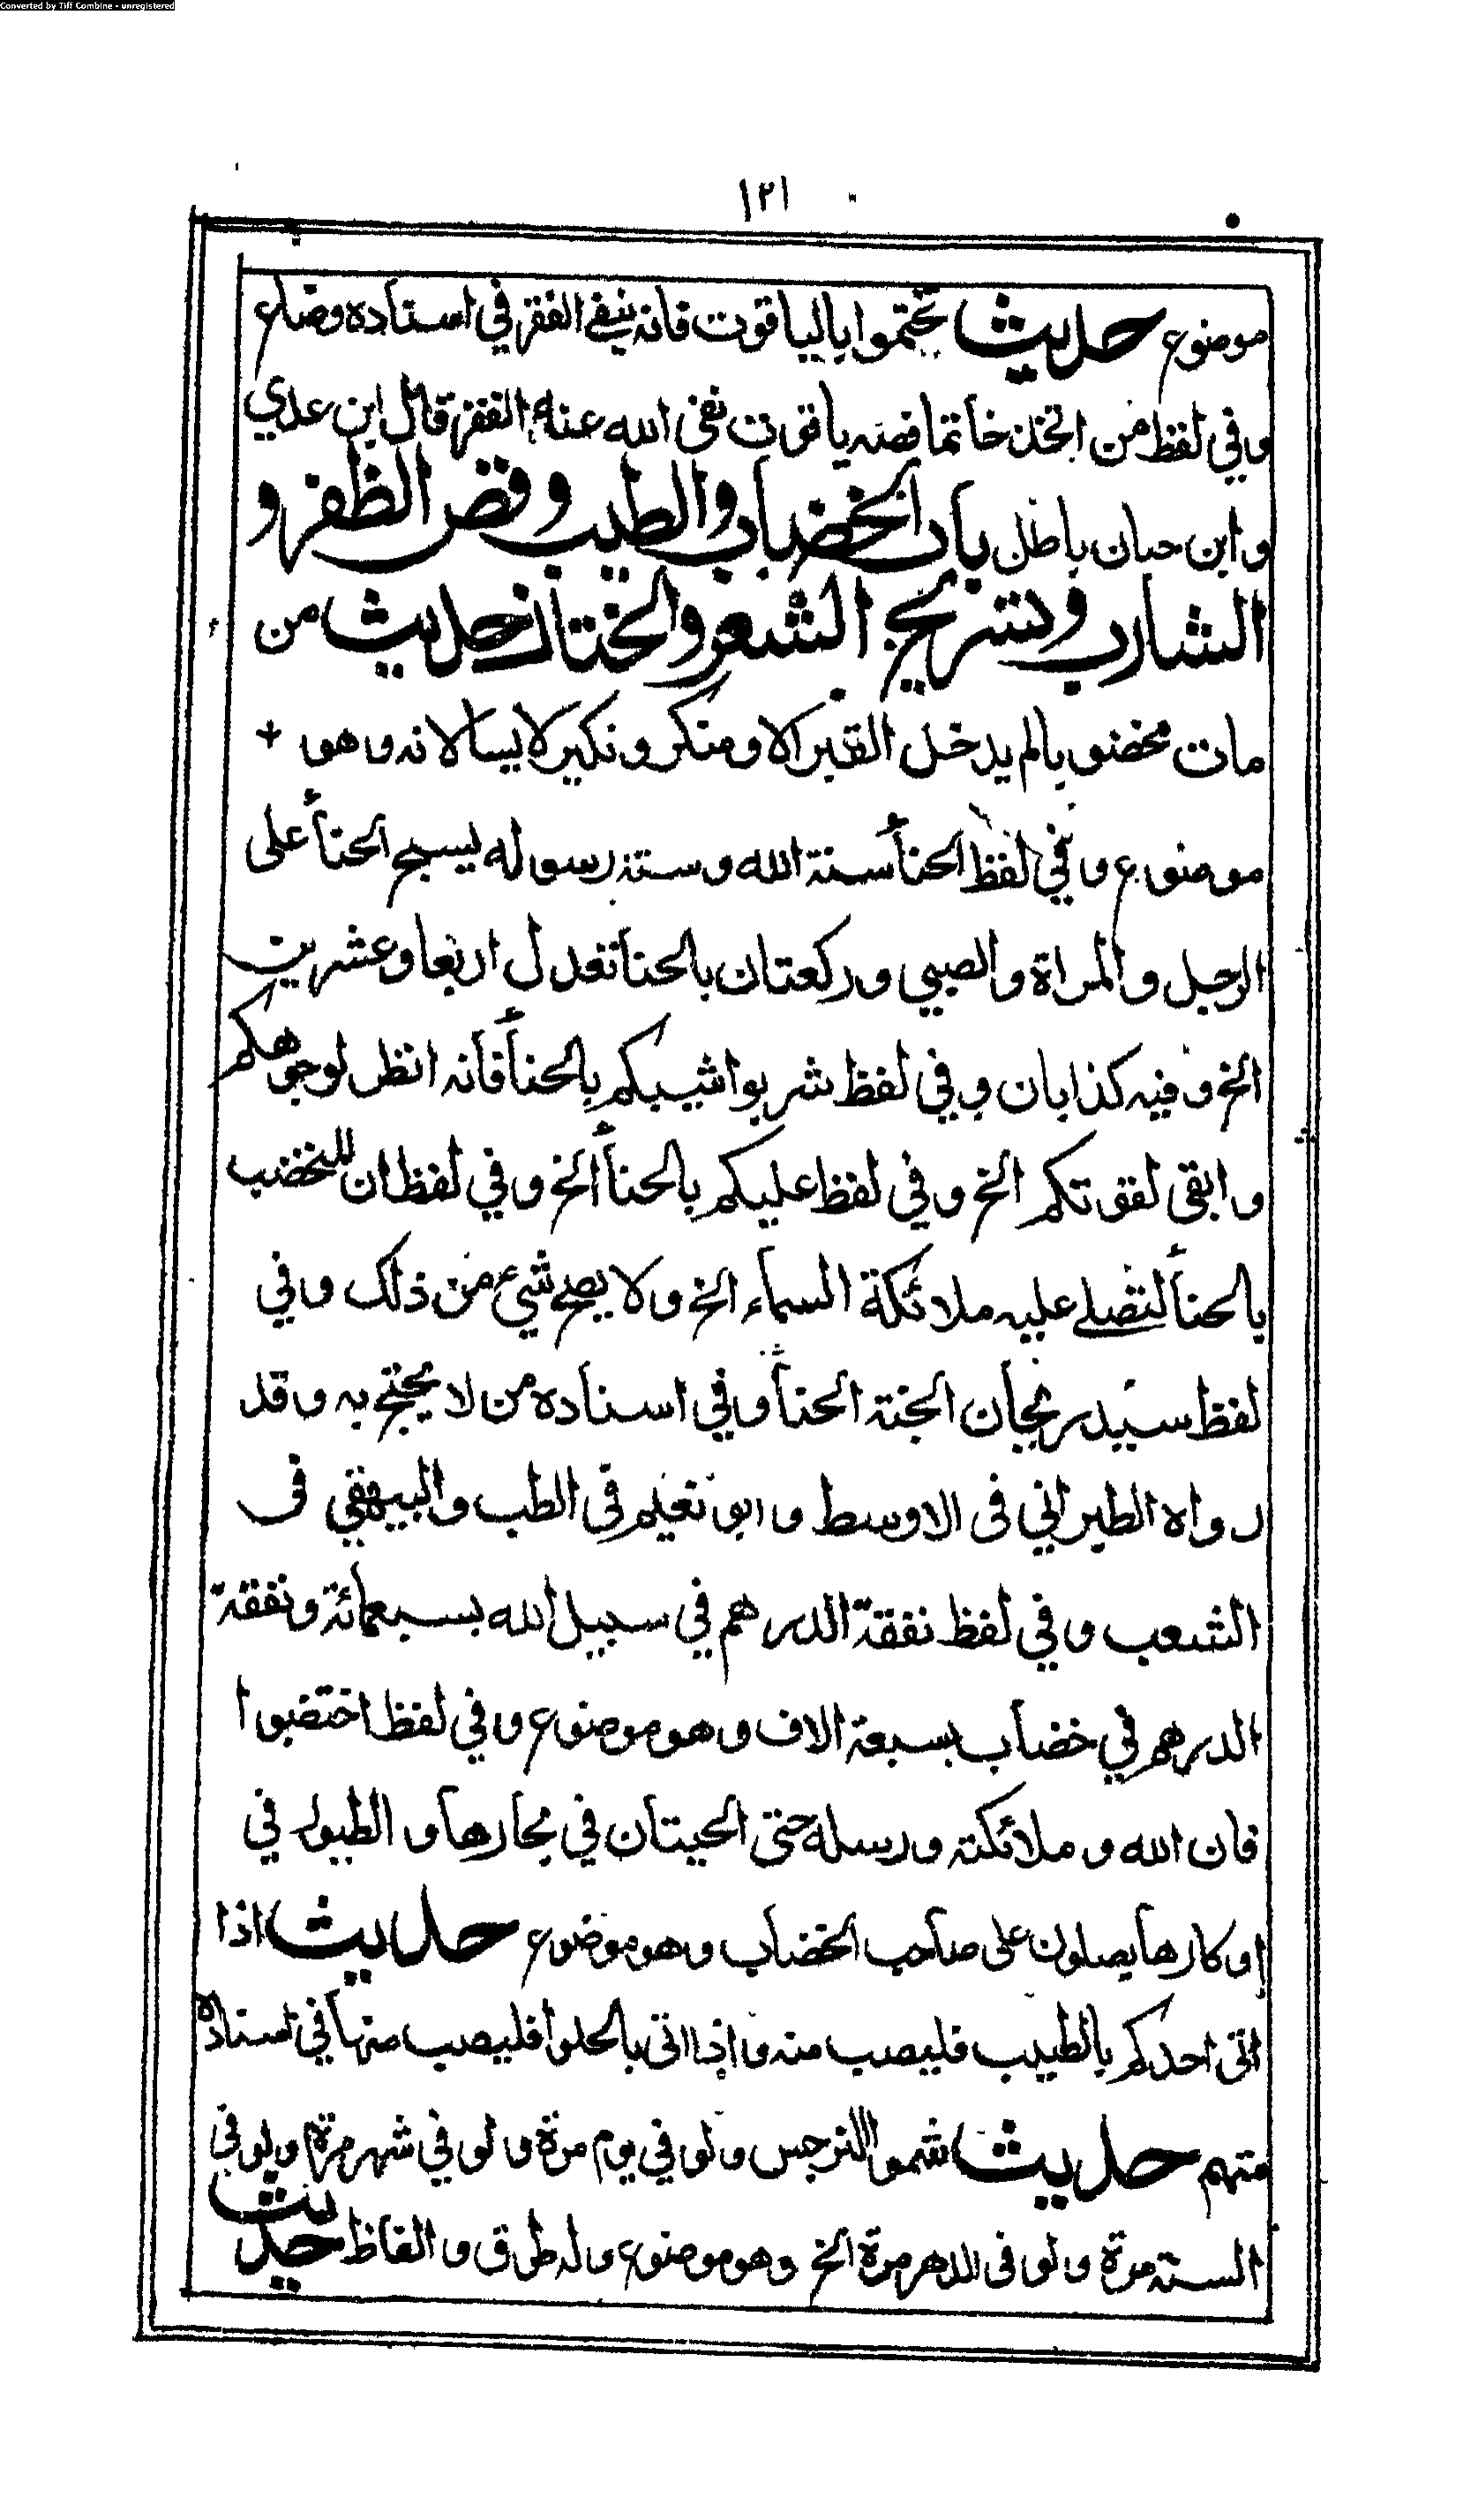 Converted by Tiff Combine - unregistered
١٢١
موضوع حديث تختموا بالياقوت فانه ينفي الفقر في اسناده وضاع
وفي لفظ من اتخذ خاتما فصه ياقوت نفى الله عنه الفقر قال ابن عدي
وابن حبان باطل باب الخضاب والطيب وقص الظفر و
الشارب وتسريح الشعر والختان حديث من
مات مخضوبا لم يدخل القبر الا ومنكر ونكير لا يسالانه وهو
موضوع وفي لفظ الحنأ سنة الله وسنة رسوله يسبح الحنأ على
الرجل والمراة والصبي وركعتان بالحنأ تعدل اربعا وعشرين
الخ وفيه كذابان وفي لفظ شربوا شيبكم بالحنأ فانه انظر لوجوهكم
وابقى لقوتكم الخ وفي لفظ عليكم بالحنأ الخ وفي لفظ ان للمخضب
بالحنأ لتصلے عليه ملائكة السماء الخ ولا يصح شيء من ذلك وفي
لفظ سيد ريحان الجنة الحنأ وفي اسناده من لا يحتج به وقد
رواه الطبراني فى الاوسط وابو نعيم في الطب والبيهقي فى
الشعب وفي لفظ نفقة الدرهم في سبيل الله بسبعمائة ونفقة
الدرهم في خضاب بسبعة الاف وهو موضوع وفي لفظ اختضبوا
فان الله وملائكته ورسله حتى الحيتان في بحارها والطيور في
اوكارها يصلون على صاحب الخضاب وهو موضوع حديث اذا
اتى احدكم بالطيب فليصب منه واذا اتى بالحلوا فليصب منها في اسناده
متهم حديث شموا النرجس ولو في يوم مرة ولو في شهر مرة ولو في
السنة مرة ولو فى الدهر مرة الخ وهو موضوع وله طرق والفاظ حديث